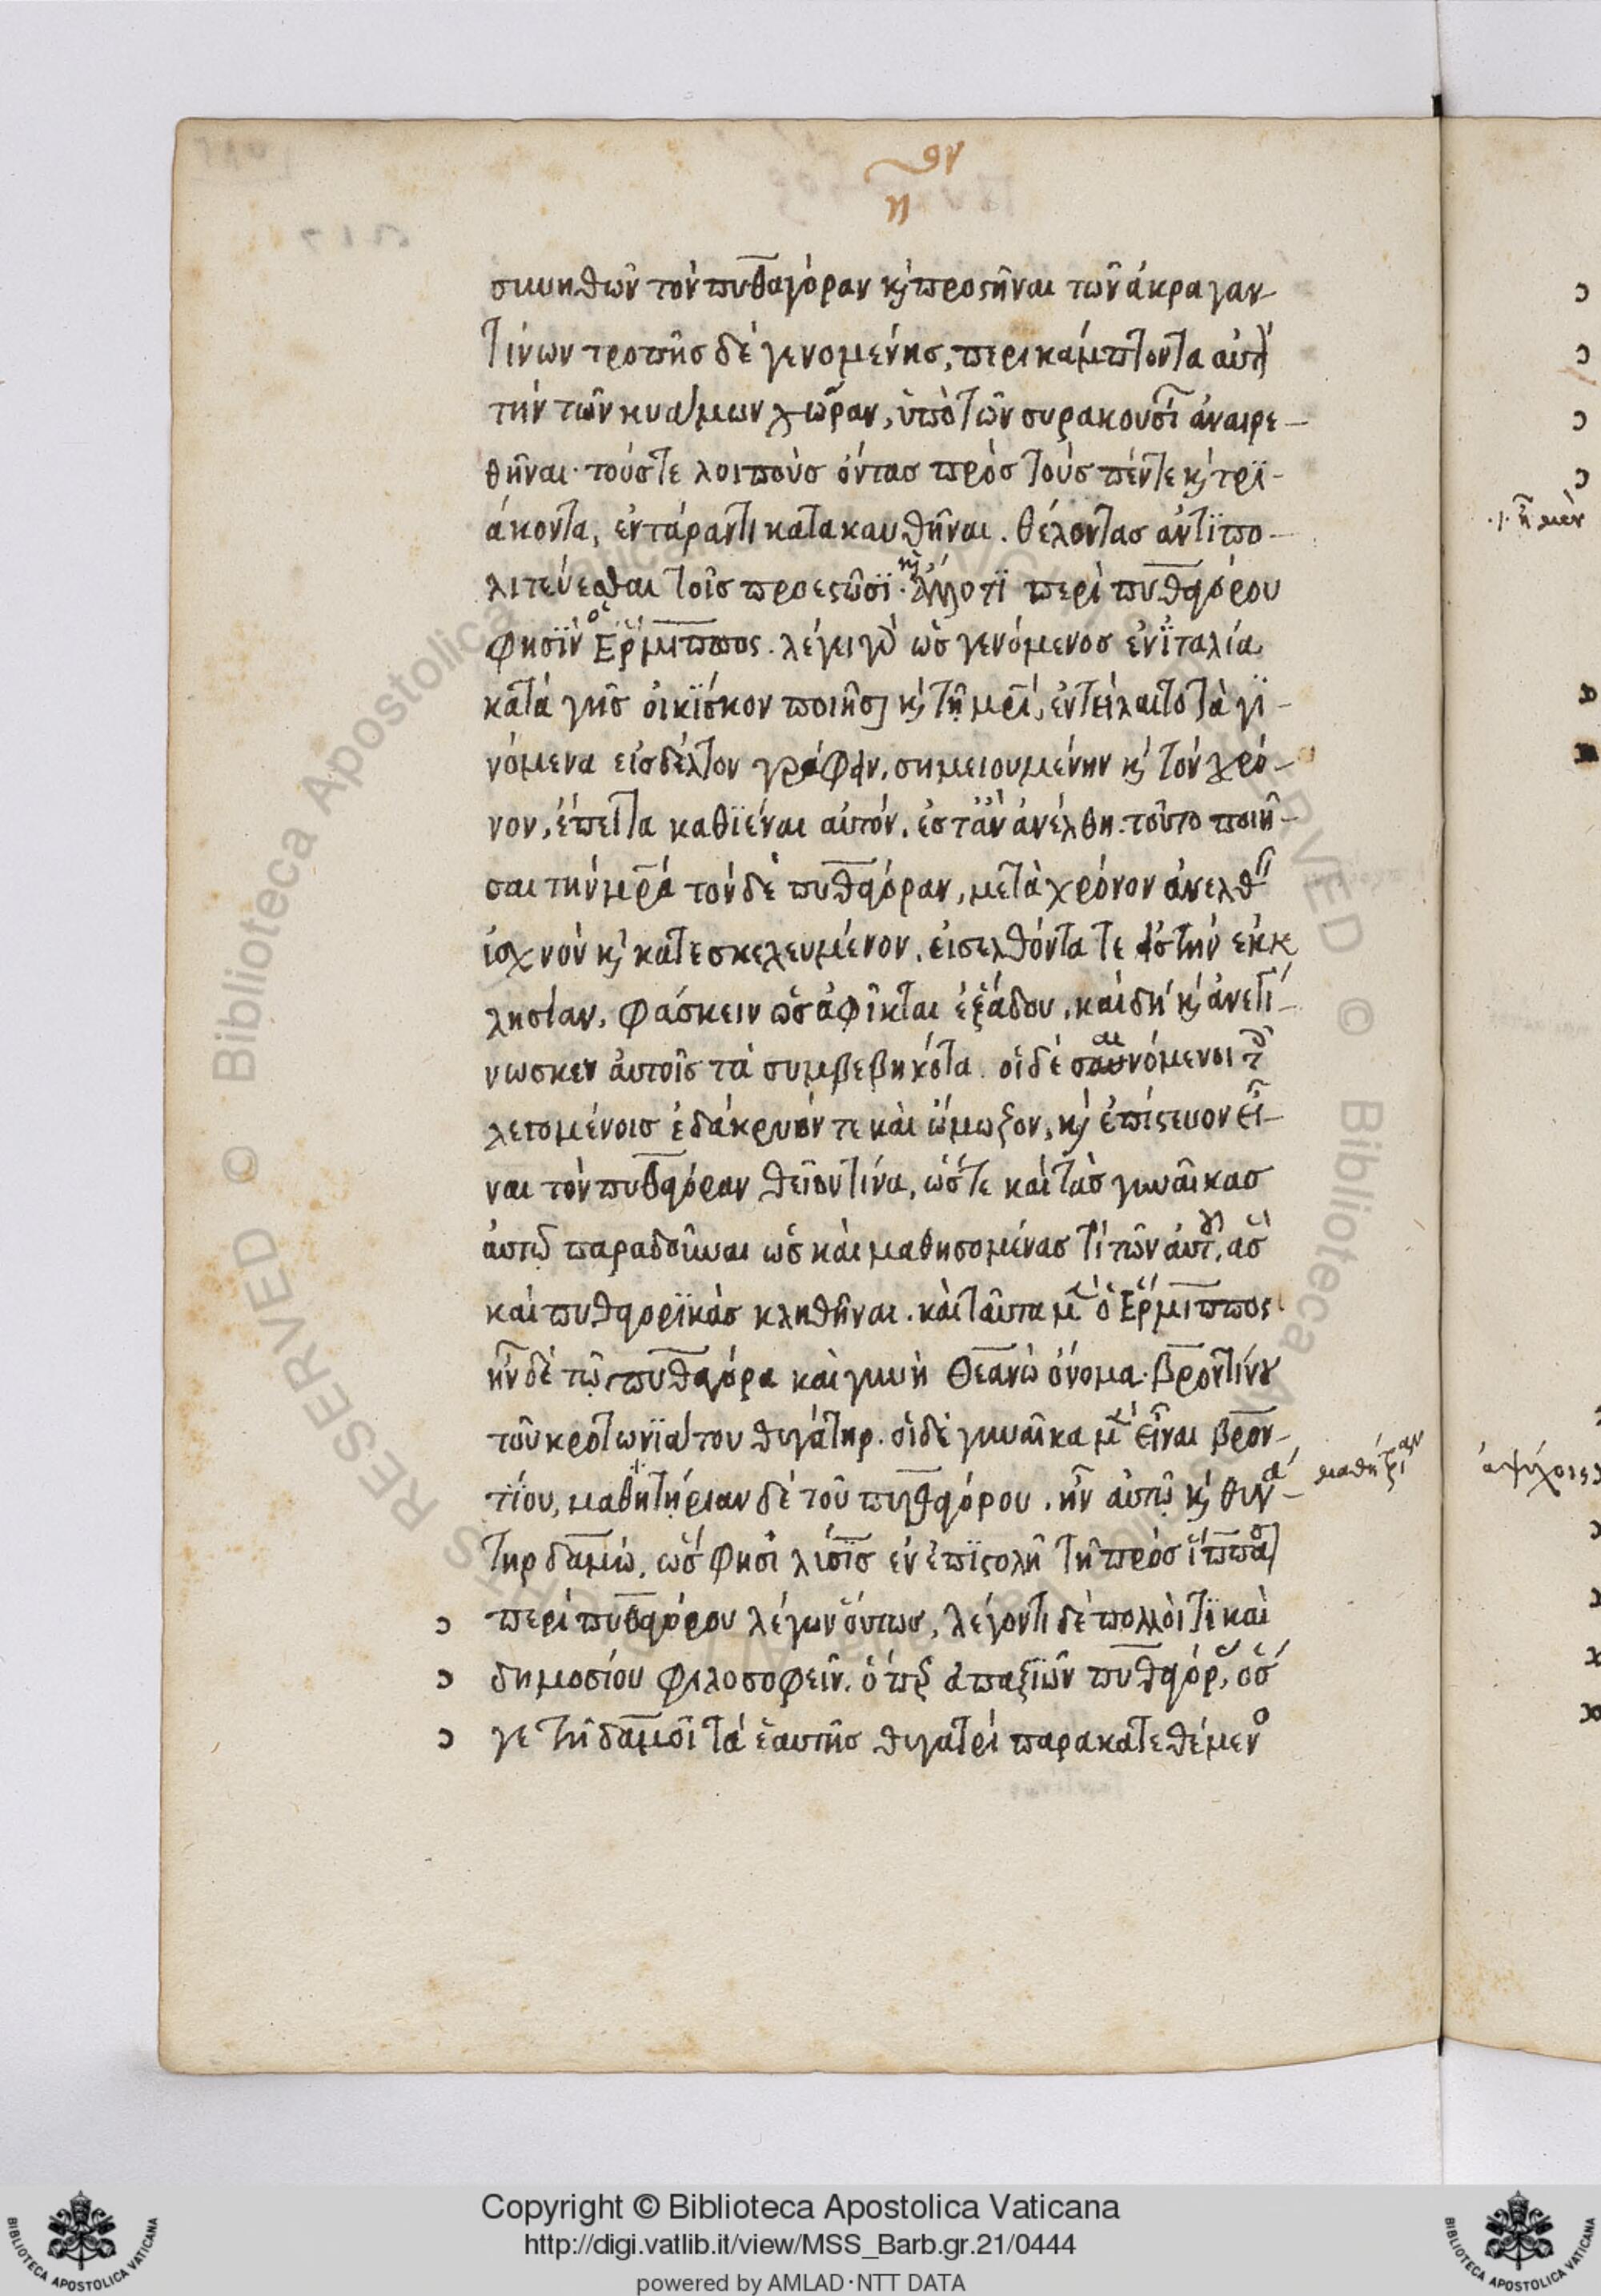 συνηθῶν τὸν πυθαγόραν κ προστῆναι τῶν ἀκραγαν-
τίνων τροπῆς δὲ γενομένης, περικάμπτοντα αὐτ
τὴν τῶν κυάμων χώραν, ὑπὸ τῶν συρακουσί ἀναιρε-
θῆναι· τούς τε λοιποὺς ὄντας πρὸς τοὺς πέντε κ τρϊ-
άκοντα, ἐν τάραντι κατακαυθῆναι. θέλοντας ἀντϊπο-
λιτεύεσθαι τοῖς προεστῶσϊ. κ ἄλλο τϊ περὶ πυθαγόρου
φησὶν ὁ Ἕρμιππος. λέγει γὰρ ὡς γενόμενος ἐν ἰταλία
κατὰ γῆς οἰκΐσκον ποιῆσ κ τῇ μρί, ἐντείλαιτο τὰ γϊ-
νόμενα εἰς δέλτον γράφειν, σημειουμένην κ τὸν χρό-
νον, ἔπειτα καθϊέναι αὐτόν, ἔστ' ἂν ἀνέλθη. τοῦτο ποιῆ-
σαι τὴν μρά τὸν δὲ πυθαγόραν, μετὰ χρόνον ἀνελθ
ἰσχνὸν κ κατεσκελευμένον, εἰσελθόντα τε εἰς τὴν ἐκκ
λησίαν, φάσκειν ὡς ἀφῖκται ἐξ ἅδου, καὶ δὴ κ ἀνεγί-
νωσκεν αὐτοῖς τὰ συμβεβηκότα. οἱ δὲ σαινόμενοι τ
λεγομένοις ἐδάκρυόν τε καὶ ὤμωξον, κ ἐπίστευον εἶ-
ναι τὸν πυθαγόραν θεῖον τίνα, ὥστε καὶ τὰς γυναῖκας
αὐτῷ παραδοῦναι ὡς καὶ μαθησομένας τὶ τῶν αὐτ, ἃς
καὶ πυθαγορϊκὰς κληθῆναι. καὶ ταῦτα μ ὁ Ἕρμιππος
ἦν δὲ τῷ πυθαγόρα καὶ γυνὴ Θεανὼ ὄνομα. βροντίνου
τοῦ κροτωνϊάτου θυγάτηρ. οἱ δὲ γυναῖκα μ εἶναι βρον-
τίου, μαθητήριαν δὲ τοῦ πυθαγόρου. ἦν αὐτῷ κ θυγά-
τηρ δαμώ, ὥς φησι λύσϊς ἐν ἐπϊστολῆ τῆ πρὸς ἵππα
περὶ πυθαγόρου λέγων οὕτως, λέγοντι δὲ πολλοὶ τὶ καὶ
δημοσίου φιλοσοφεῖν. ὅπρ ἀπαξϊῶν πυθαγόρ, ὅς
γε τῆ δαμοῖ τᾶ ἑαυτῆς θυγατρὶ παρακατεθέμενο
μαθήτριαν